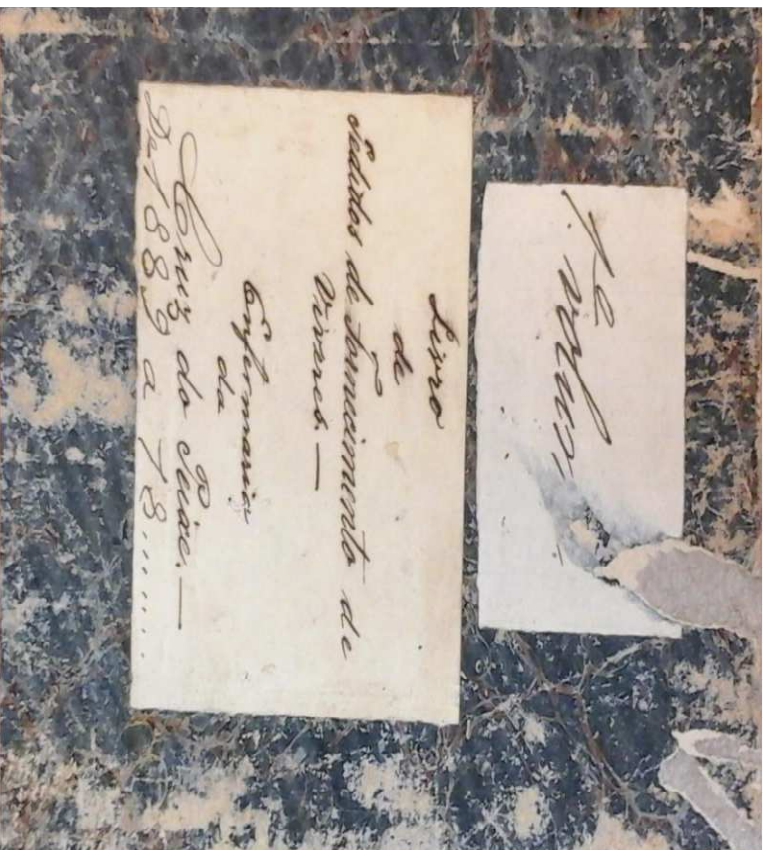 Livro
de
Pedidos de Fornecimento de
Viveres. —
Enfermaria
da
Cruz do Peixe. —
De 1889 a 18......